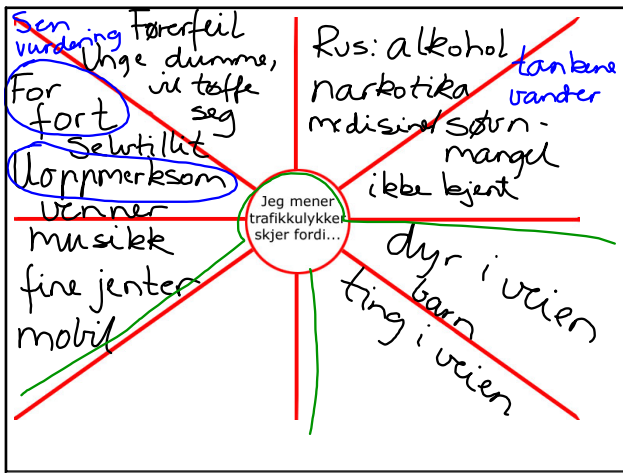 Sen
vurdering
Førerfeil
Unge dumme,
vil tøffe
seg
For
fort
Selvtillit
Uoppmerksom
venner
musikk
fine jenter
mobil
Rus: alkohol
narkotika
medisiner
søvn-
mangel
ikke kjent
tankene
vander
Jeg mener
trafikkulykker
skjer fordi...
dyr i veien
barn
ting i veien